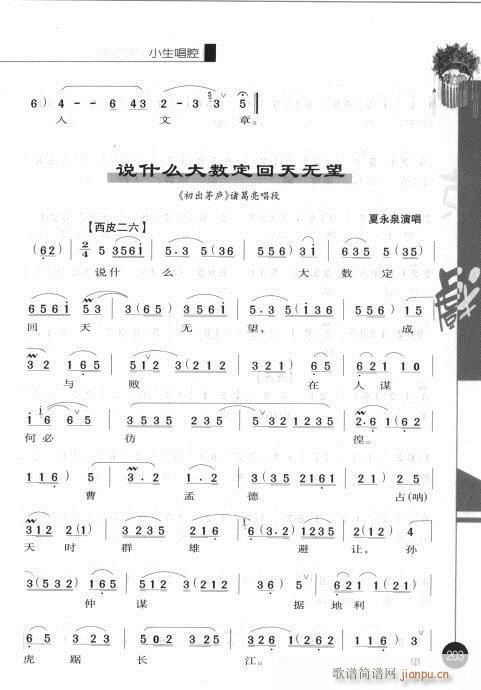 小生唱腔
6) 4 - - 6 43 2 - 3 3 5
人 文 章。
说什么大数定回天无望
《初出茅庐》诸葛亮唱段
夏永泉演唱
【西皮二六】
(62) 2/4 5 3561 5·3 5(36 5·6 5 6) 3·5 6535
说什 么 大 数 定
6561 53 3(65) 3561 5·35(3 561 535 6) 15
回 天 无 望, 成
32 165 212 3(212 321) 65 621 10
与 败 在 人 谋
1 6 65 3535 2321 3535 2312 2·1(62
何必 彷 徨。
116) 5 3·5 3(2 35 2161 6535 116) 5
曹 孟 德 占(呐)
312 2(1) 3235 216 6(3·2 1235 12) 4
天时 群 雄 避 让, 孙
3(532) 165 2123 5(643) 235(6 621 1(1)
仲 谋 据 地 利
虎 踞 长 江。 望
203
歌谱简谱网
jianpu.cn